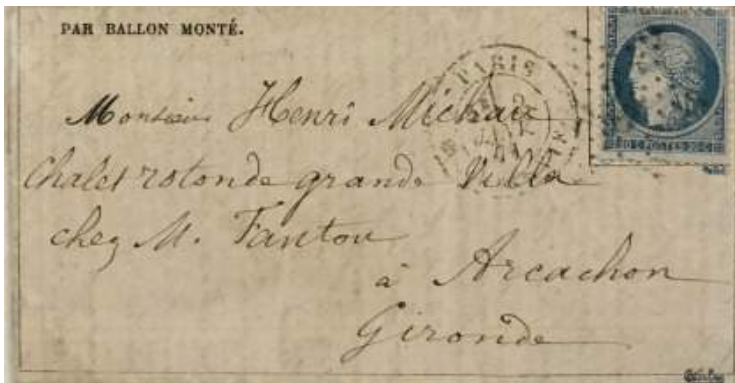 PAR BALLON MONTÉ.
PARIS
Monsieur Henri Michau
Chalet rotonde grande Villa
chez M. Fantou
à Arcachon
Gironde
20 C POSTES 20 C